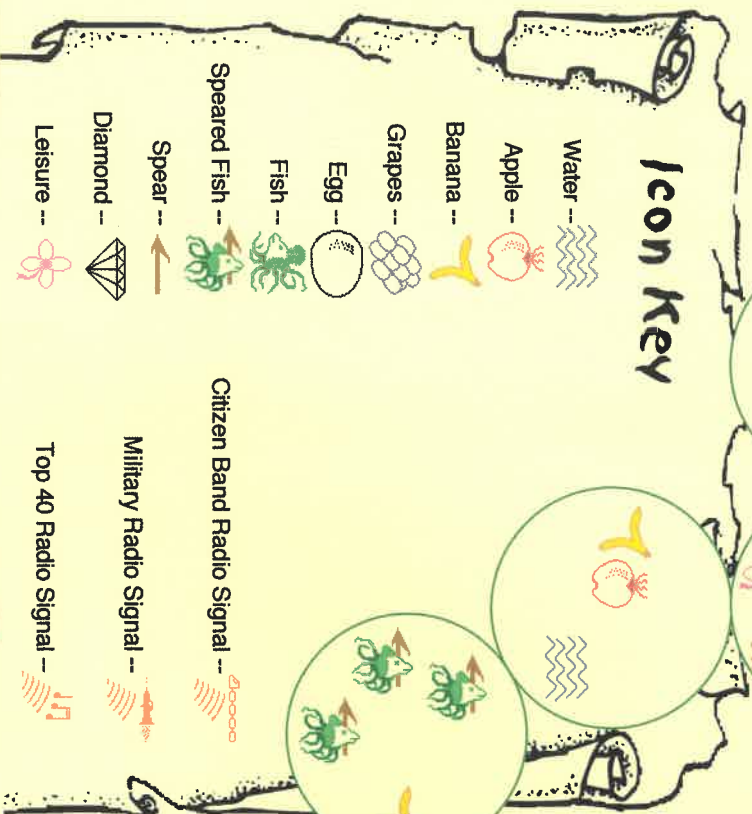 Icon Key
Water --
Apple --
Banana --
Grapes --
Egg --
Fish --
Speared Fish --
Spear --
Diamond --
Leisure --
Citizen Band Radio Signal --
Military Radio Signal --
Top 40 Radio Signal --